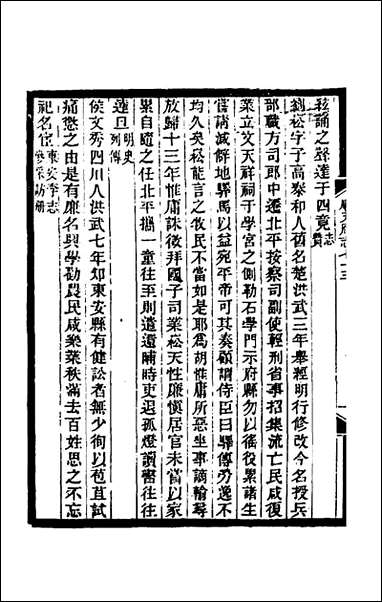 弦誦之聲達于四竟
劉崧字子高泰和人舊名楚洪武三年舉經明行修改今名授兵
部職方司郎中遷北平按察司副使輕刑省事招集流亡民咸復
業立文天祥祠于學宮之側勒石學門示府縣勿以徭役累諸生
嘗請減僻地驛馬以益宛平帝可其奏顧謂侍臣曰驛傳勞逸不
均久矣崧能言之牧民不當如是耶爲胡惟庸所惡坐事謫輸尋
放歸十三年惟庸誅徵拜國子司業崧天性廉愼居官未嘗以家
累自隨之任北平攜一童往至則遣還晡時吏退孤燈讀書往往
達旦明史列傳
侯文秀四川人洪武七年知東安縣有健訟者無少徇以苞苴試
痛懲之由是有廉名興學勸農民咸樂業秩滿去百姓思之不忘
祀名宦東安李志參采訪冊